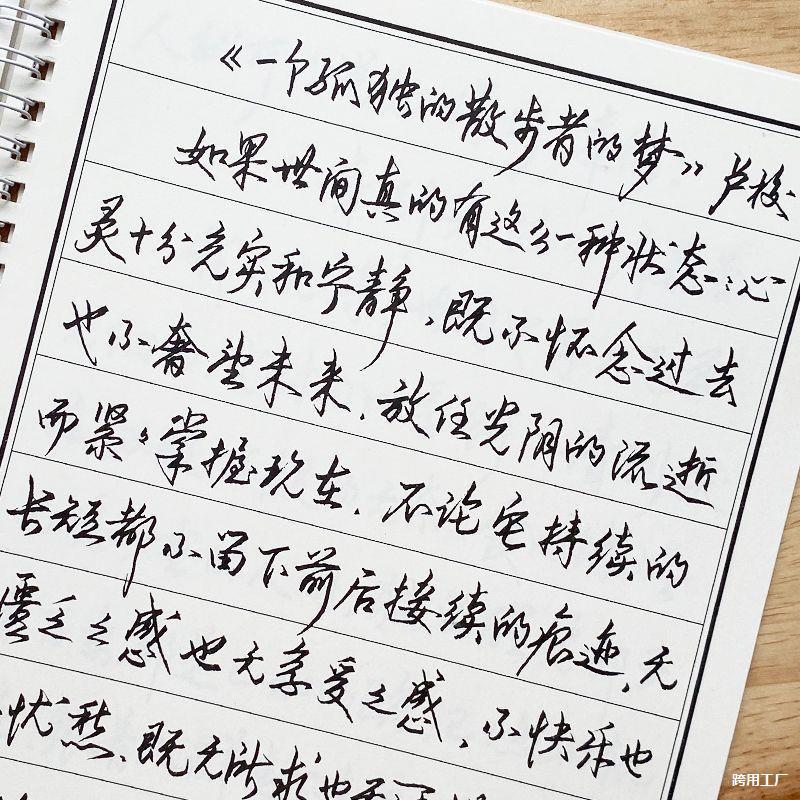 《一个孤独的散步者的梦》卢梭
如果世间真的有这么一种状态:心
灵十分充实和宁静,既不怀念过去
也不奢望未来,放任光阴的流逝
而紧紧掌握现在,不论它持续的
长短都不留下前后接续的痕迹,无
匮乏之感也无享受之感,不快乐也
忧愁,既无所求也无
跨用工厂